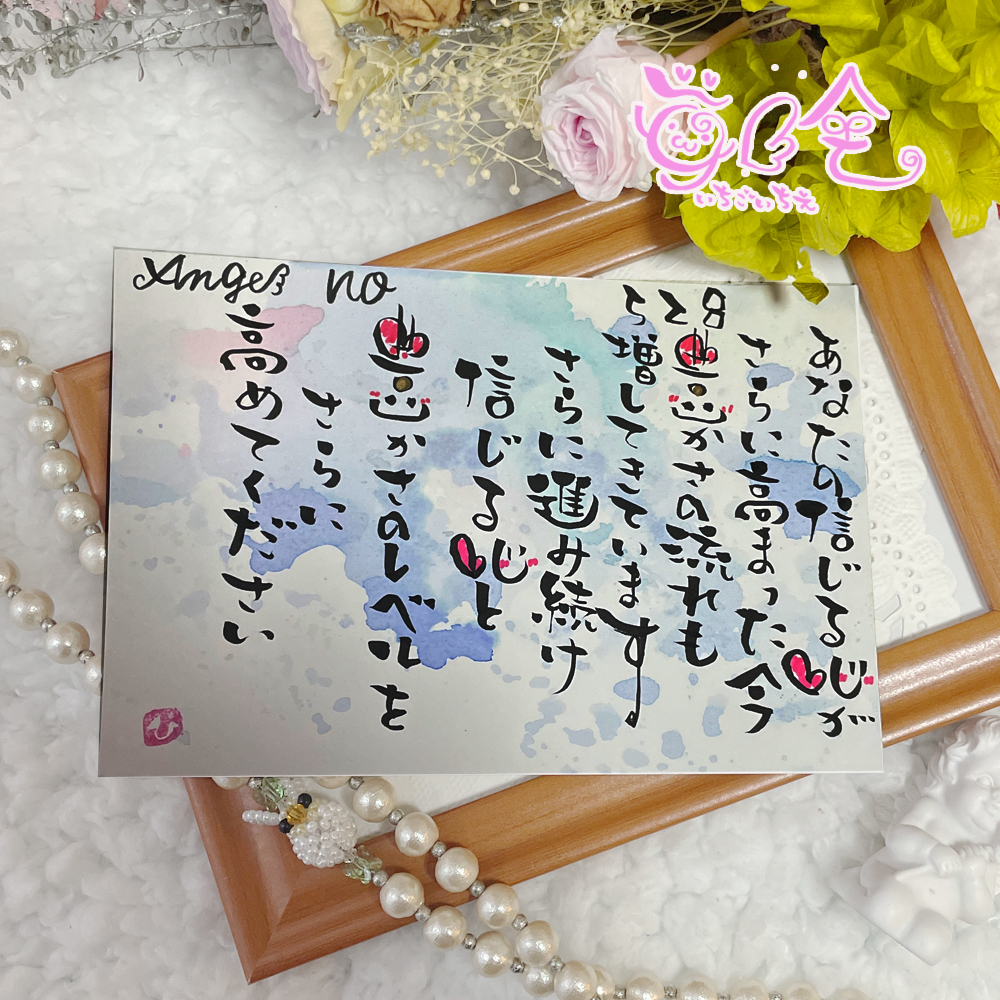 Angel no 528
あなたの信じる心が
さらに高まった今
豊かさの流れも
増してきています
さらに進み続け
信じる心と
豊かさのレベルを
さらに
高めてください
いちごいちえ